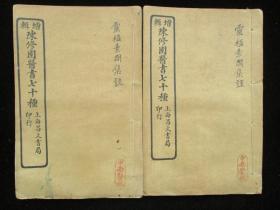 增輯
陳修園醫書七十種
上海昌文書局
印行
靈樞素問集註
增輯
陳修園醫書七十種
上海昌文書局
印行
靈樞素問集註